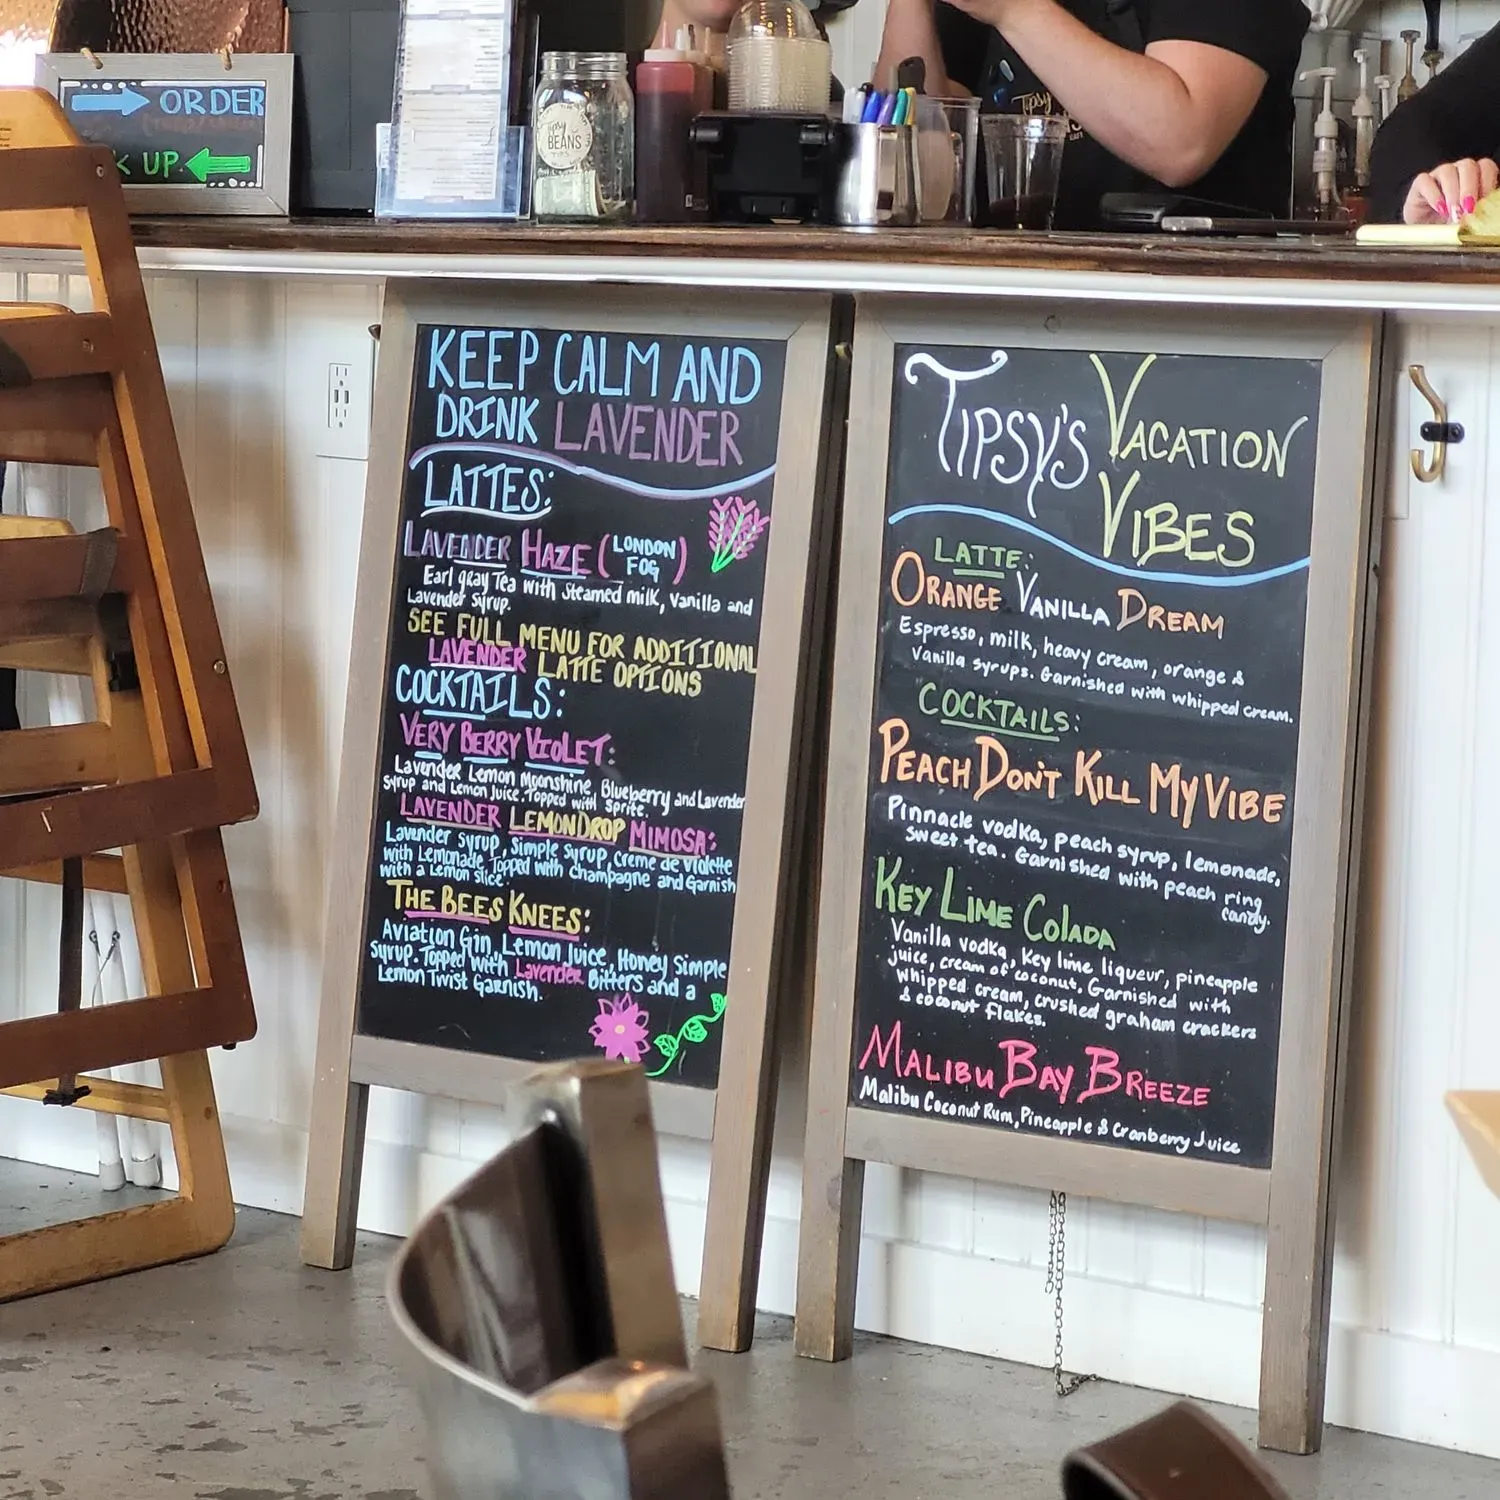 ORDER
K UP
Tipsy
BEANS
TIPS
Tipsy
KEEP CALM AND
DRINK LAVENDER
LATTES:
LAVENDER HAZE (LONDON
FOG)
Earl gray Tea with Steamed milk, Vanilla and
Lavender Syrup.
SEE FULL MENU FOR ADDITIONAL
LAVENDER LATTE OPTIONS
COCKTAILS:
VERY BERRY VIOLET:
Lavender Lemon Moonshine, Blueberry and Lavender
Syrup and Lemon Juice. Topped with Sprite.
LAVENDER LEMONDROP MIMOSA:
Lavender Syrup, Simple Syrup, Creme de Violette
with Lemonade Topped with Champagne and Garnish
with a Lemon slice
THE BEES KNEES:
Aviation Gin, Lemon Juice, Honey Simple
Syrup. Topped with Lavender Bitters and a
Lemon Twist Garnish.
TIPSY'S VACATION
VIBES
LATTE:
ORANGE VANILLA DREAM
Espresso, milk, heavy cream, orange &
Vanilla syrups. Garnished with whipped cream.
COCKTAILS:
PEACH DON'T KILL MY VIBE
Pinnacle vodka, peach syrup, lemonade,
sweet tea. Garnished with peach ring
candy.
KEY LIME COLADA
Vanilla vodka, Key lime liqueur, pineapple
juice, cream of coconut. Garnished with
whipped cream, crushed graham crackers
& coconut flakes.
MALIBU BAY BREEZE
Malibu Coconut Rum, Pineapple & Cranberry Juice